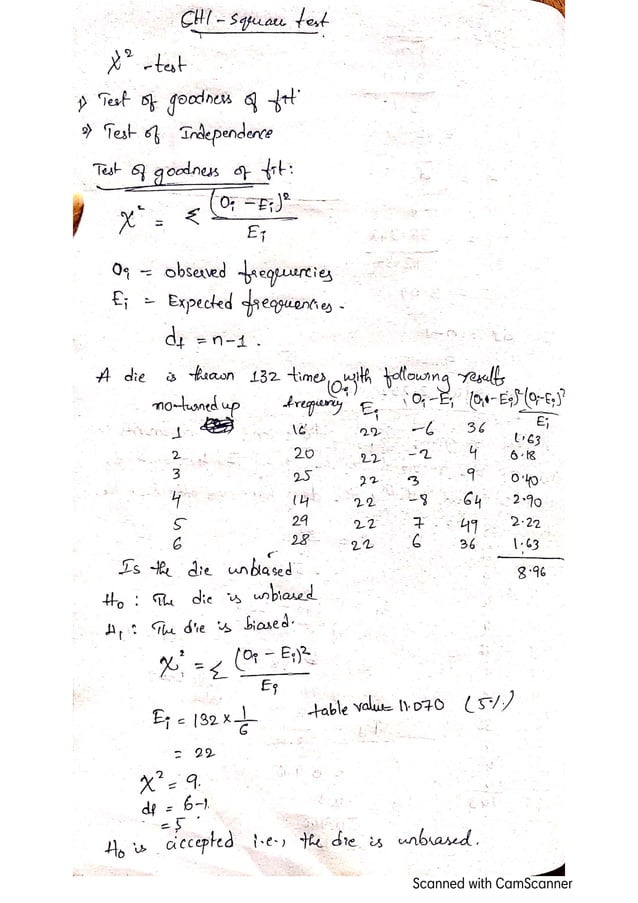 CHI-Square test
χ² -test
1) Test of goodness of fit
2) Test of Independence
Test of goodness of fit:
χ² = Σ (Oi - Ei)² / Ei
Oi = observed frequencies
Ei = Expected frequencies.
df = n-1.
A die is thrown 132 times with following results
no-turned up frequency (Oi) Ei Oi-Ei (Oi-Ei)² (Oi-Ei)²/Ei
1 16 22 -6 36 1.63
2 20 22 -2 4 0.18
3 25 22 3 9 0.40
4 14 22 -8 64 2.90
5 29 22 7 49 2.22
6 28 22 6 36 1.63
8.96
Is the die unbiased
H0 : The die is unbiased
H1 : The die is biased.
χ² = Σ (Oi - Ei)² / Ei
Ei = 132 × 1/6 table value = 11.070 (5%)
= 22
χ² = 9.
df = 6-1
= 5
H0 is accepted i.e., the die is unbiased.
Scanned with CamScanner